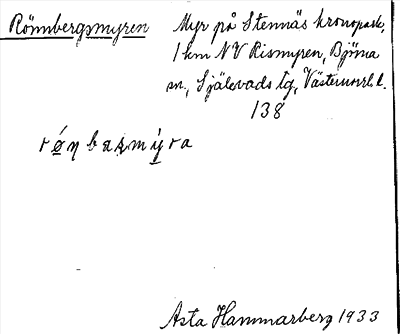 Rönnbergsmyren
Myr på Stennäs kronopark,
1 km NV Rismyren, Björna
sn, Själevads tg, Västernorrl. l.
138
rǿŋbaʂmýra
Asta Hammarberg 1933